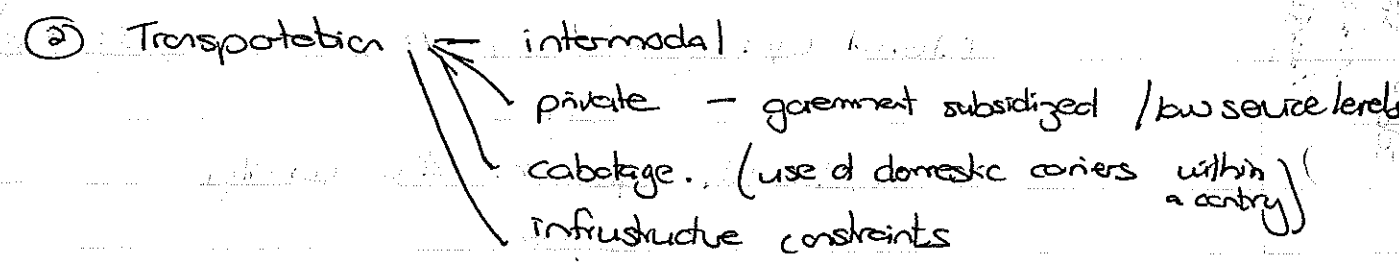 ② Transportation — intermodal.
private — government subsidized / low service levels
cabotage. (use of domestic carriers within a country)
infrustructure constraints